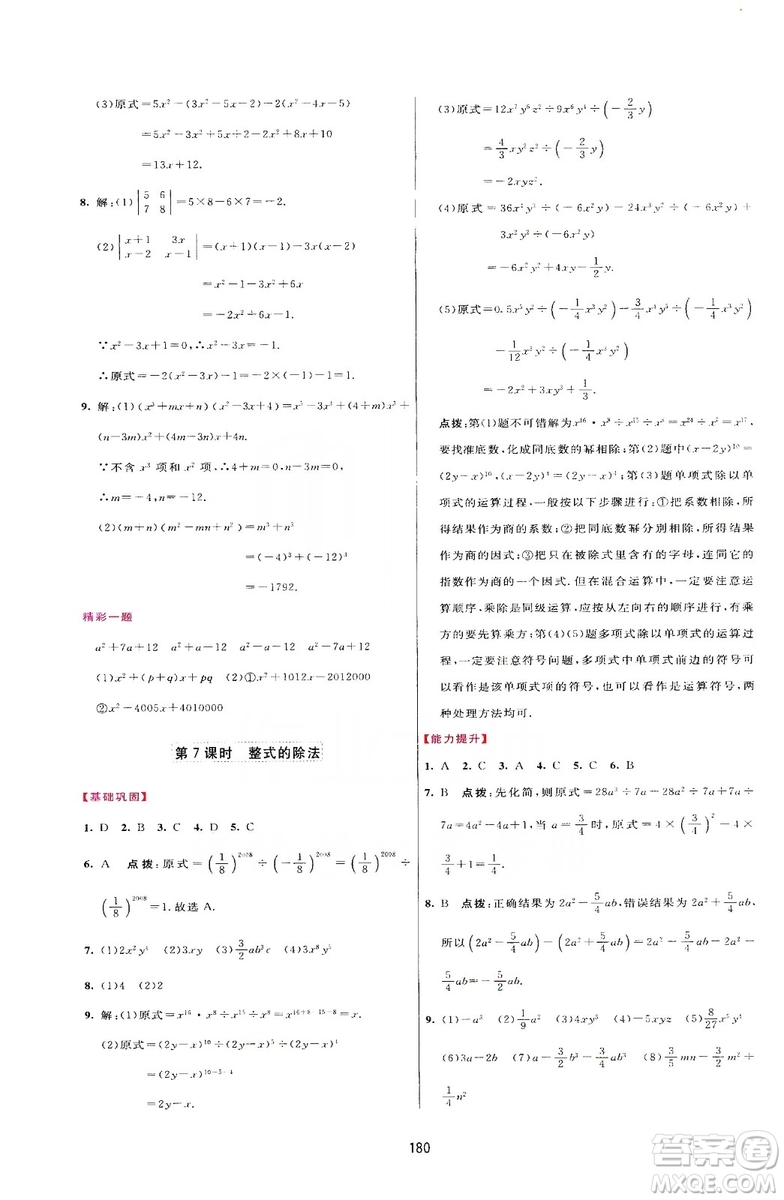 (3)原式=5x²-(3x²-5x-2)-2(x²-4x-5)
=5x²-3x²+5x+2-2x²+8x+10
=13x+12.
8. 解:(1)|5 6|=5×8-6×7=-2.
|7 8|
(2)|x+1 3x|=(x+1)(x-1)-3x(x-2)
|x-2 x-1|
=x²-1-3x²+6x
=-2x²+6x-1.
∵x²-3x+1=0,∴x²-3x=-1.
∴原式=-2(x²-3x)-1=2-1=1.
9. 解:(1)(x³+mx+n)(x²-3x+4)=x⁵-3x⁴+(4+m)x³+
(n-3m)x²+(4m-3n)x+4n.
∵不含x³项和x²项,∴4+m=0,n-3m=0.
∴m=-4,n=-12.
(2)(m+n)(m²-mn+n²)=m³+n³
=(-4)³+(-12)³
=-1792.
精彩一题
a²+7a+12 a²+a-12 a²-a-12 a²-7a+12
(1)x²+(p+q)x+pq (2)①x²+1012x-2012000
②x²-4005x+4010000
第7课时 整式的除法
【基础巩固】
1. D 2. B 3. C 4. D 5. C
6. A 点拨:原式=(1/8)²⁰⁰⁸÷(-1/8)²⁰⁰⁸=(1/8)²⁰⁰⁸÷
(1/8)²⁰⁰⁸=1.故选A.
7. (1)2x²y⁴ (2)3xy (3)3/2 a²b²c (4)3x⁸y⁵
8. (1)4 (2)2
9. 解:(1)原式=x¹⁶·x⁸÷x¹⁵÷x⁸=x¹⁶⁺⁸⁻¹⁵⁻⁸=x.
(2)原式=(2y-x)¹⁰÷(2y-x)⁵÷(2y-x)⁴
=(2y-x)¹⁰⁻⁵⁻⁴
=2y-x.
(3)原式=12x⁷y⁶z²÷9x⁶y⁴÷(-2/3 y)
=4/3 xy³z²÷(-2/3 y)
=-2xyz².
(4)原式=36x²y²÷(-6xy)-24x³y÷(-6xy)+
3xy²÷(-6xy)
=-6xy+4x²-1/2 y.
(5)原式=0.5x⁵y²÷(-1/4 x³y²)-3/4 x³y³÷(-1/4 x³y²)-
1/12 x³y²÷(-1/4 x³y²)=-2x²+3y+1/3.
点拨:第(1)题不可错解为x¹⁶·x⁸÷x¹⁵÷x⁸=x²⁴÷x⁷=x¹⁷,
要找准底数,化成同底数的幂相除;第(2)题中(x-2y)¹⁰=
(2y-x)¹⁰,(x-2y)⁴=(2y-x)⁴;第(3)题要给单项式除以单
项式的运算过程,一般按以下步骤进行:①把系数相除,所
得结果作为商的系数;②把同底数幂分别相除,所得结果
作为商的因式;③把只在被除式里有的字母,连同它的
指数作为一个因式.但在混合运算中,一定要注意运
算顺序,乘除是同级运算,应按从左向右的顺序进行,有乘
方的要先算乘方;第(4)(5)题多项式除以单项式的运算过
程中,一定要注意符号问题,多项式中单项式前边的符号可
以看作是该单项式项的符号,也可以看作是运算符号,两
种处理方法均可.
【能力提升】
1. A 2. C 3. A 4. C 5. C 6. B
7. B 点拨:先化简,则原式=28a³÷7a-28a²÷7a+7a÷
7a=4a²-4a+1,当a=3/4时,原式=4×(3/4)²-4×
3/4+1=1/4.
8. B 点拨:正确结果为2a²-5/4 ab,错误结果为2a²+5/4 ab,
所以(2a²-5/4 ab)-(2a²+5/4 ab)=2a²-5/4 ab-2a²-
5/4 ab=-5/2 ab.
9. (1)-a³ (2)1/9 a² (3)4xy³ (4)-5xyz (5)8/27 x⁵y³
(6)3a-2b (7)-3/2 b³-3/4 a (8)3/5 mn-3/2 m²-
1/4 n²
180
答案圈
MXQE.COM